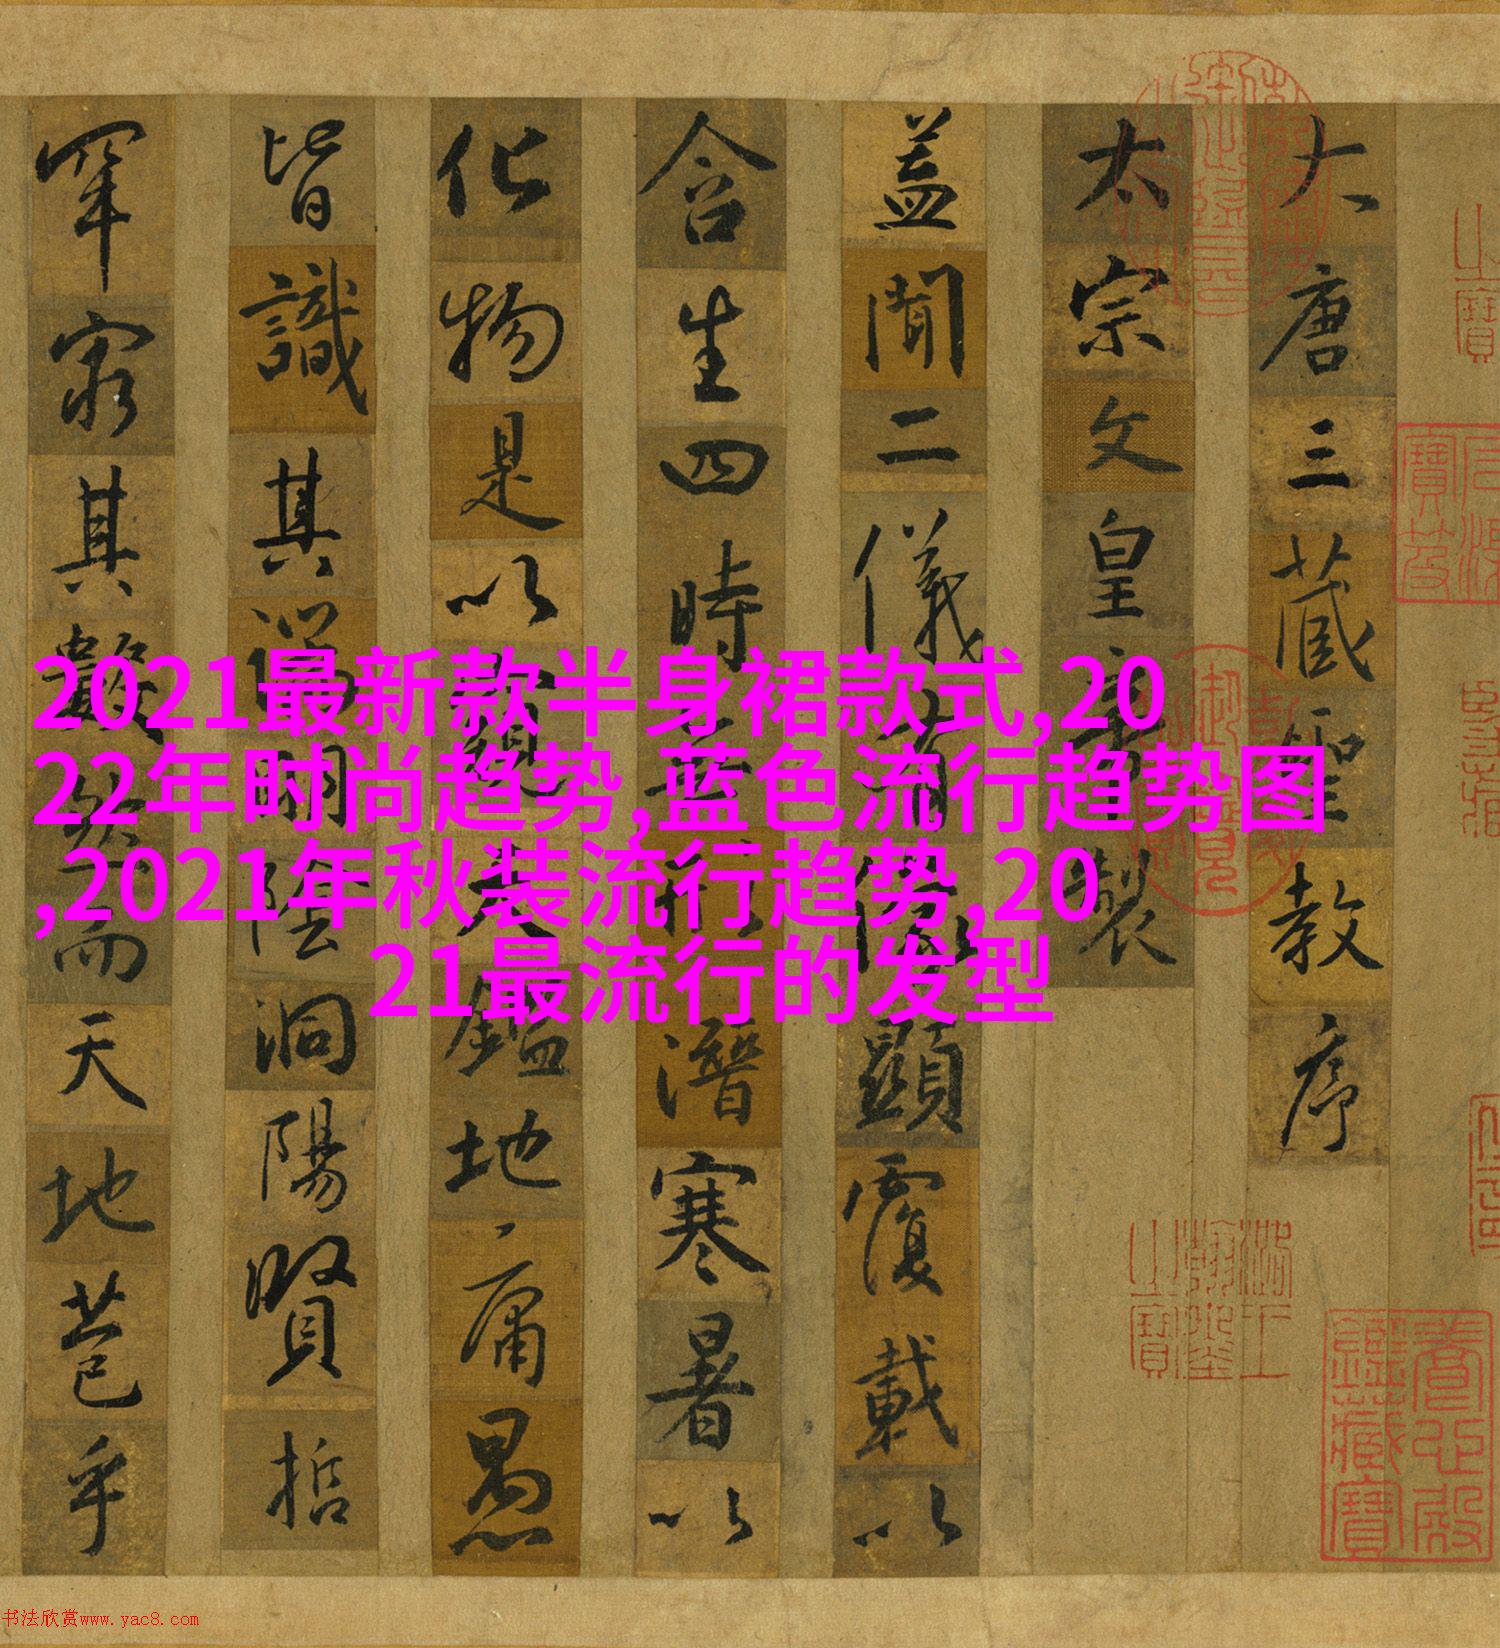 大唐三藏聖教序
太宗文皇帝製
蓋聞二儀有像顯覆載以
含生四時無形潛寒暑以
化物是以窺天鑑地庸愚
皆識其端明陰洞陽賢哲
罕窮其數然而天地苞乎
2021最新款半身裙款式,20
22年时尚趋势,蓝色流行趋势图
,2021年秋装流行趋势,20
21最流行的发型
養心殿鑑藏寶
书法欣赏www.yac8.com